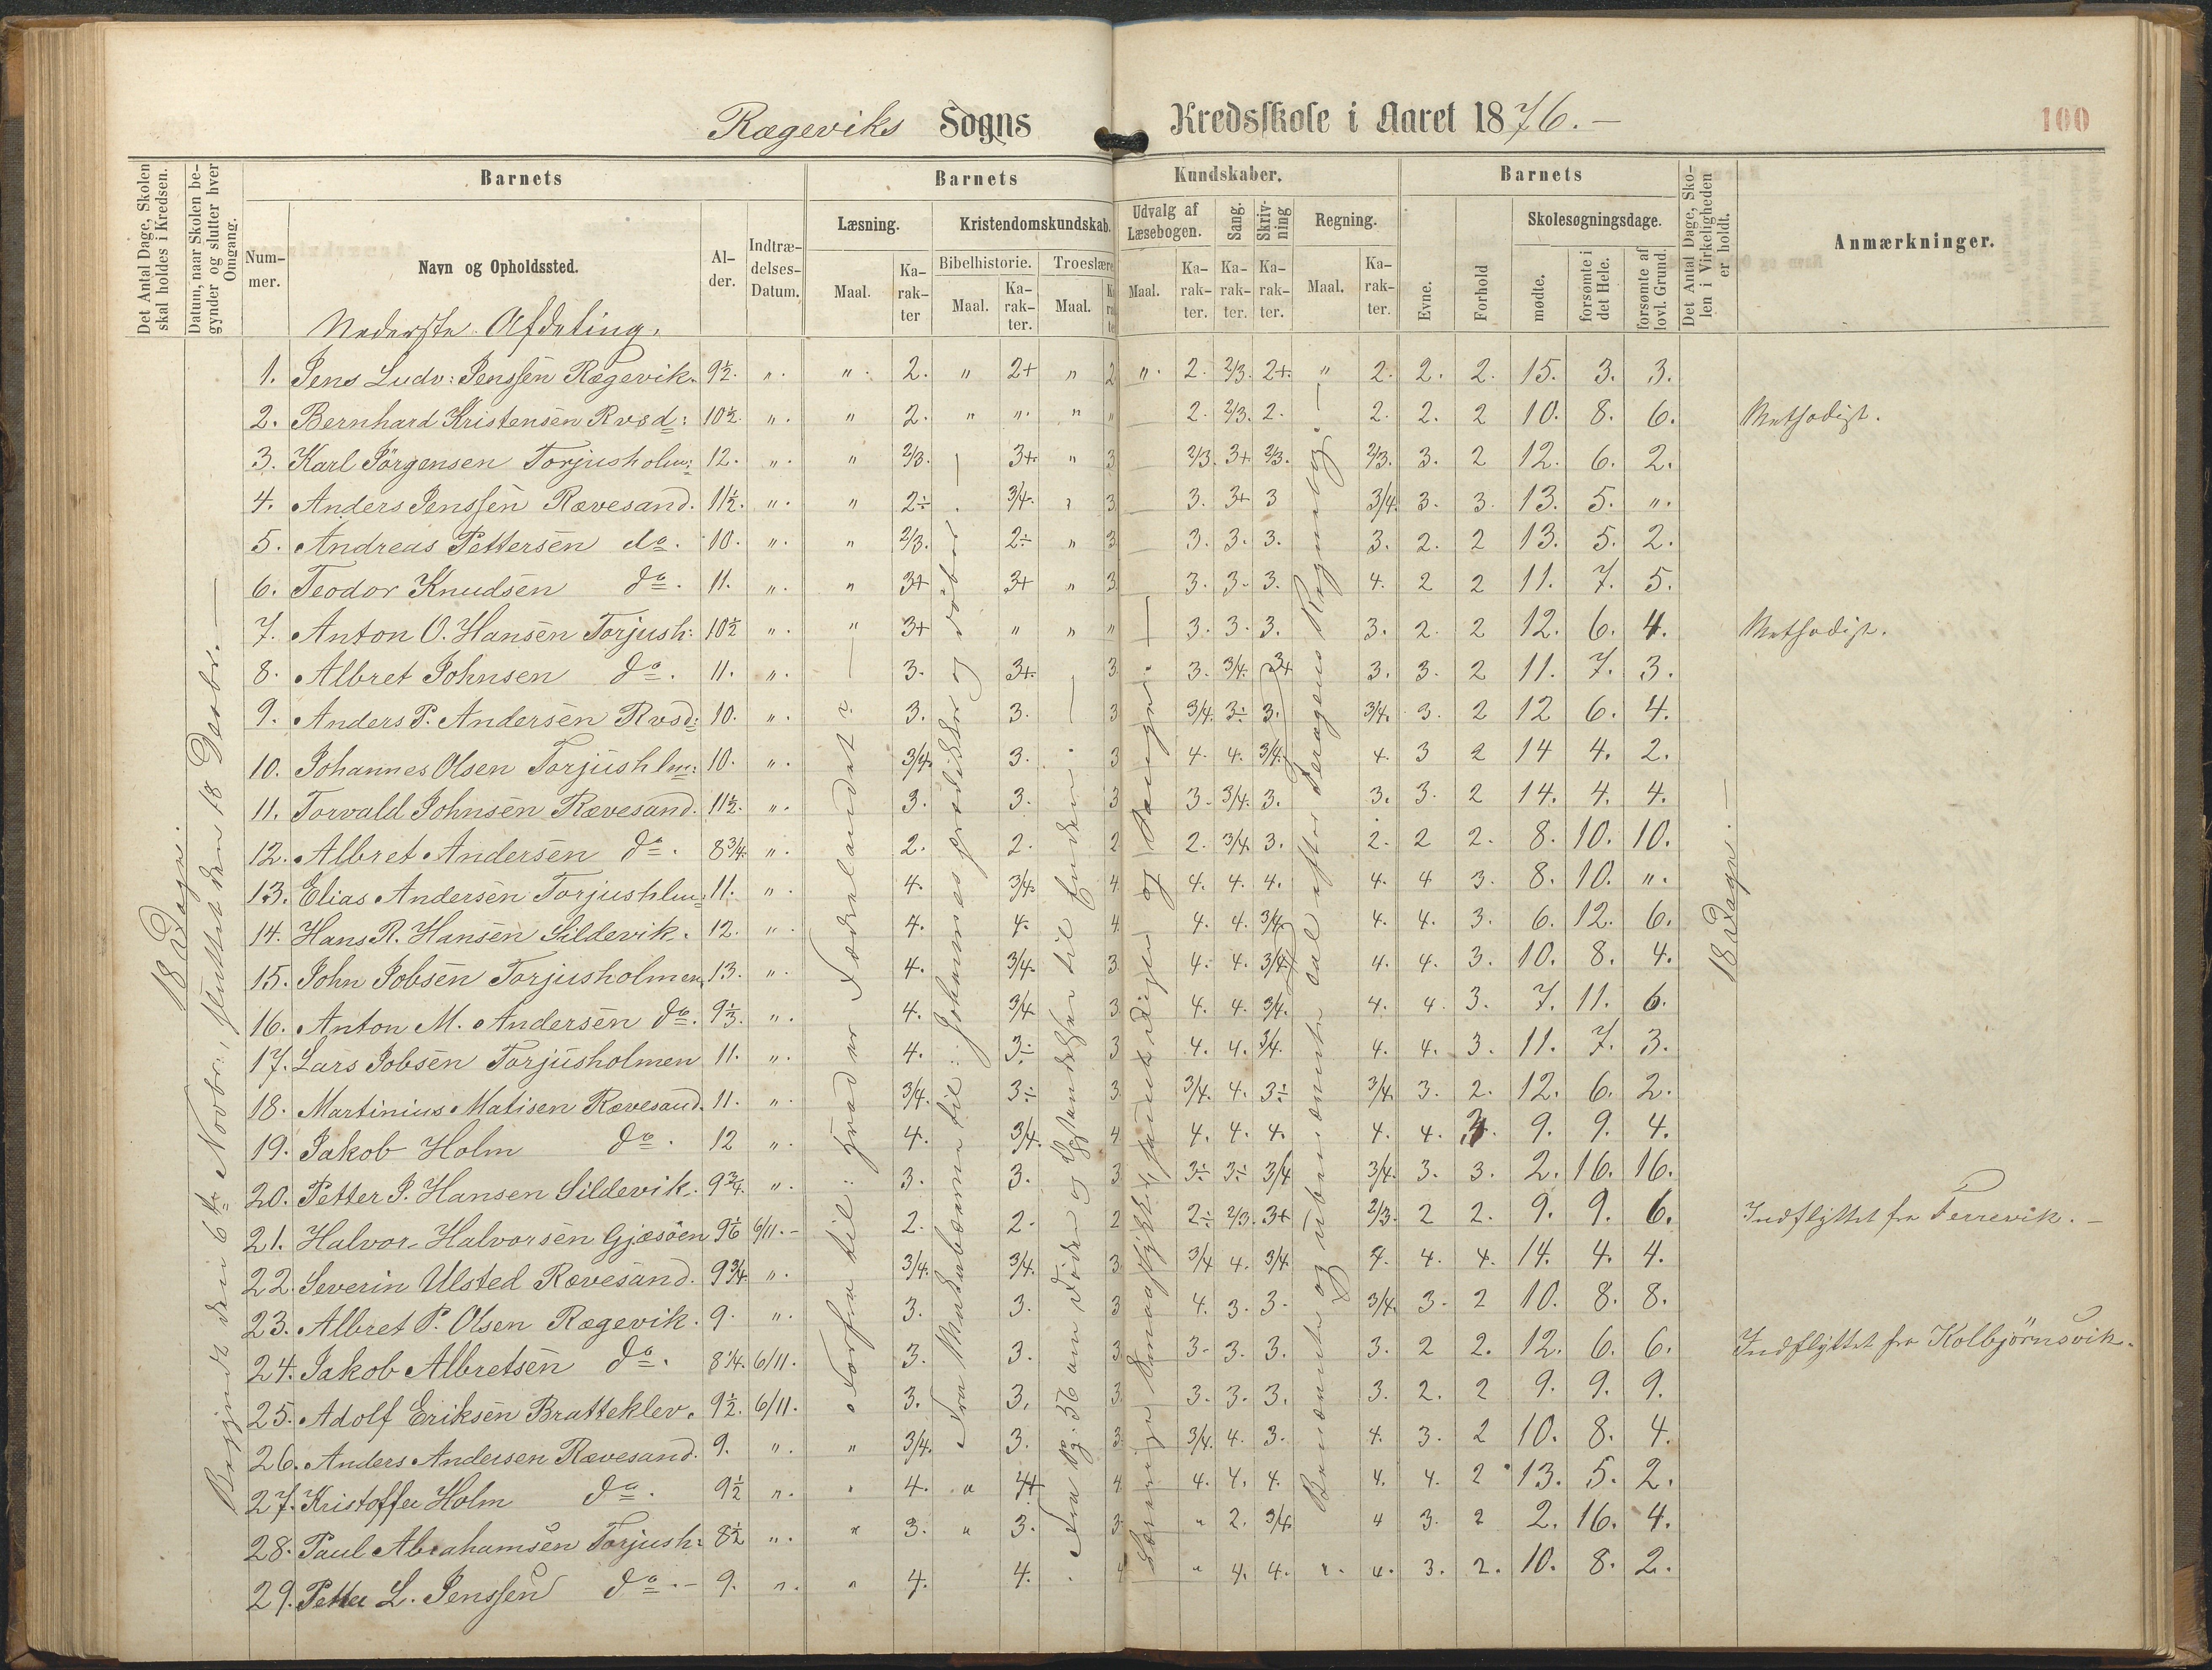 Rægeviks Sogns Kredsskole i Aaret 1876.-
100
Det Antal Dage, Skolen skal holdes i Kredsen.
Datum, naar Skolen begynder og slutter hver Omgang.
Barnets
Nummer.
Navn og Opholdssted.
Alder.
Indtrædelses-Datum.
Barnets Kundskaber.
Læsning.
Maal.
Karakter
Kristendomskundskab.
Bibelhistorie.
Maal.
Karakter.
Troeslære
Maal.
Udvalg af Læsebogen.
Maal.
Karakter.
Sang.
Karakter.
Skrivning
Karakter.
Regning.
Maal.
Karakter.
Barnets
Evne.
Forhold
Skolesøgningsdage.
mødte.
forsømte i det Hele.
forsømte af lovl. Grund.
Det Antal Dage, Skolen i Virkeligheden er holdt.
Anmærkninger.
Nederste Afdeling.
1. Jens Ludv: Jenssen Rægevik. 9½. ". ". 2. " 2+ " 2 ". 2. 2/3. 2+. " 2. 2. 2. 15. 3. 3.
2. Bernhard Kristensen Rvsd: 10½. ". " 2. " ". " " 2. 2/3. 2. 2. 2. 2 10. 8. 6. Methodist.
3. Karl Jörgensen Torjusholm: 12. ". " 2/3. 3+. " 3 2/3. 3+ 2/3. 2/3. 3. 2 12. 6. 2.
4. Anders Jenssen Rævesand. 11½. ". " 2÷ 3/4. 3 3. 3+ 3 3/4. 3. 3. 13. 5. ".
5. Andreas Pettersen do. 10. ". " 2/3. 2÷ " 3 3. 3. 3. 3. 2. 2 13. 5. 2.
6. Teodor Knudsen do. 11. ". " 3+ 3+ " 3 3. 3. 3. 4. 2 2 11. 7. 5.
7. Anton O. Hansen Torjush: 10½ ". " 3+ " " " 3. 3. 3. 3. 2. 2 12. 6. 4. Methodist.
8. Albret Johnsen do. 11. ". 3. 3+. 3 3. 3/4. 3+ 3. 3. 2 11. 7. 3.
9. Anders P. Andersen Rvsd: 10. ". 3. 3. 3 3/4. 3÷ 3. 3/4. 3. 2 12 6. 4.
10. Johannes Olsen Torjushlm: 10. ". 3/4. 3. 3 4. 4. 3/4. 4. 3 2 14 4. 2.
11. Torvald Johnsen Rævesand. 11½. ". 3. 3. 3 3. 3/4. 3. 3. 3. 2 14. 4. 4.
12. Albret Andersen do. 8¾. ". 2. 2. 2 2. 3/4. 3. 2. 2 2. 8. 10. 10.
13. Elias Andersen Torjushlm: 11. ". 4. 3/4. 4 4. 4. 4. 4. 4 3. 8. 10. ".
14. Hans R. Hansen Sildevik. 12. ". 4. 4. 4. 4. 4. 3/4. 4. 4. 3. 6. 12. 6.
15. John Jobsen Torjusholmen, 13. ". 4. 3/4. 3 4. 4. 3/4. 4. 4. 3. 10. 8. 4.
16. Anton M. Andersen do. 9⅓. ". 4. 3/4 3 4. 4. 3/4. 4. 4 3. 7. 11. 6.
17. Lars Jobsen Torjusholmen 11. ". 4. 3÷ 3 4. 4. 3/4. 4. 4. 3. 11. 7. 3.
18. Martinius Matisen Rævesand. 11. ". 3/4. 3÷ 3. 3/4. 4. 3÷ 3/4. 3. 2. 12. 6. 2.
19. Jakob Holm do. 12 ". 4. 3/4. 4 4. 4. 4. 4. 4. 9. 9. 4.
20. Petter J. Hansen Sildevik. 9¾. ". 3. 3. 3 3÷ 3÷ 3/4 3/4. 3. 3. 2. 16. 16.
21. Halvor Halvorsen Gjæsöen 9⅙ 6/11.- 2. 2. 2 2÷ 2/3. 3+ 2/3. 2 2. 9. 9. 6. Indflyttet fra Terrevik.-
22. Severin Ulsted Rævesand. 9¾. ". 3/4. 3/4. 3. 3/4 4. 3/4. 4. 4. 4. 14. 4. 4.
23. Albret P. Olsen Rægevik. 9. ". 3. 3. 3 4. 3. 3. 3/4. 3. 2 10. 8. 8.
24. Jakob Albretsen do. 8¼. 6/11. 3. 3. 3 3. 3. 3. 3. 2 2. 12. 6. 6. Indflyttet fra Kolbjörnsvik.
25. Adolf Eriksen Bratteklev. 9½. 6/11. 3. 3. 3. 3. 3. 3. 3. 2. 2 9. 9. 9.
26. Anders Andersen Rævesand. 9. ". " 3/4. 3. 3. 3/4. 4. 3. 4. 3. 2 10. 8. 4.
27. Kristoffer Holm do. 9½ ". " 4. " 4+ 4 4. 4. 4. 4. 4. 2 13. 5. 2.
28. Paul Abrahamsen Torjush: 8½ ". " 3. " 3. 3. " 2. 3/4. 4 3. 2 2. 16. 4.
29. Petter L. Jenssen do.- 9. ". " 4. 4. 4 " 4. 4. ". 4. 3. 2. 10. 8. 2.
18 Dage.
Begyndt den 6te Novbr., sluttet den 18 Decbr.-
Forfra til: hvad er Fædrelandet?
Fra Makabæerne til: Johannes prædiker og döber
Fra Pg. 56 om Döden og Opstandelsen til Enden.
og Sange.
Benævnte og ubenævnte Tal efter Regnebog.
18 Dage.-